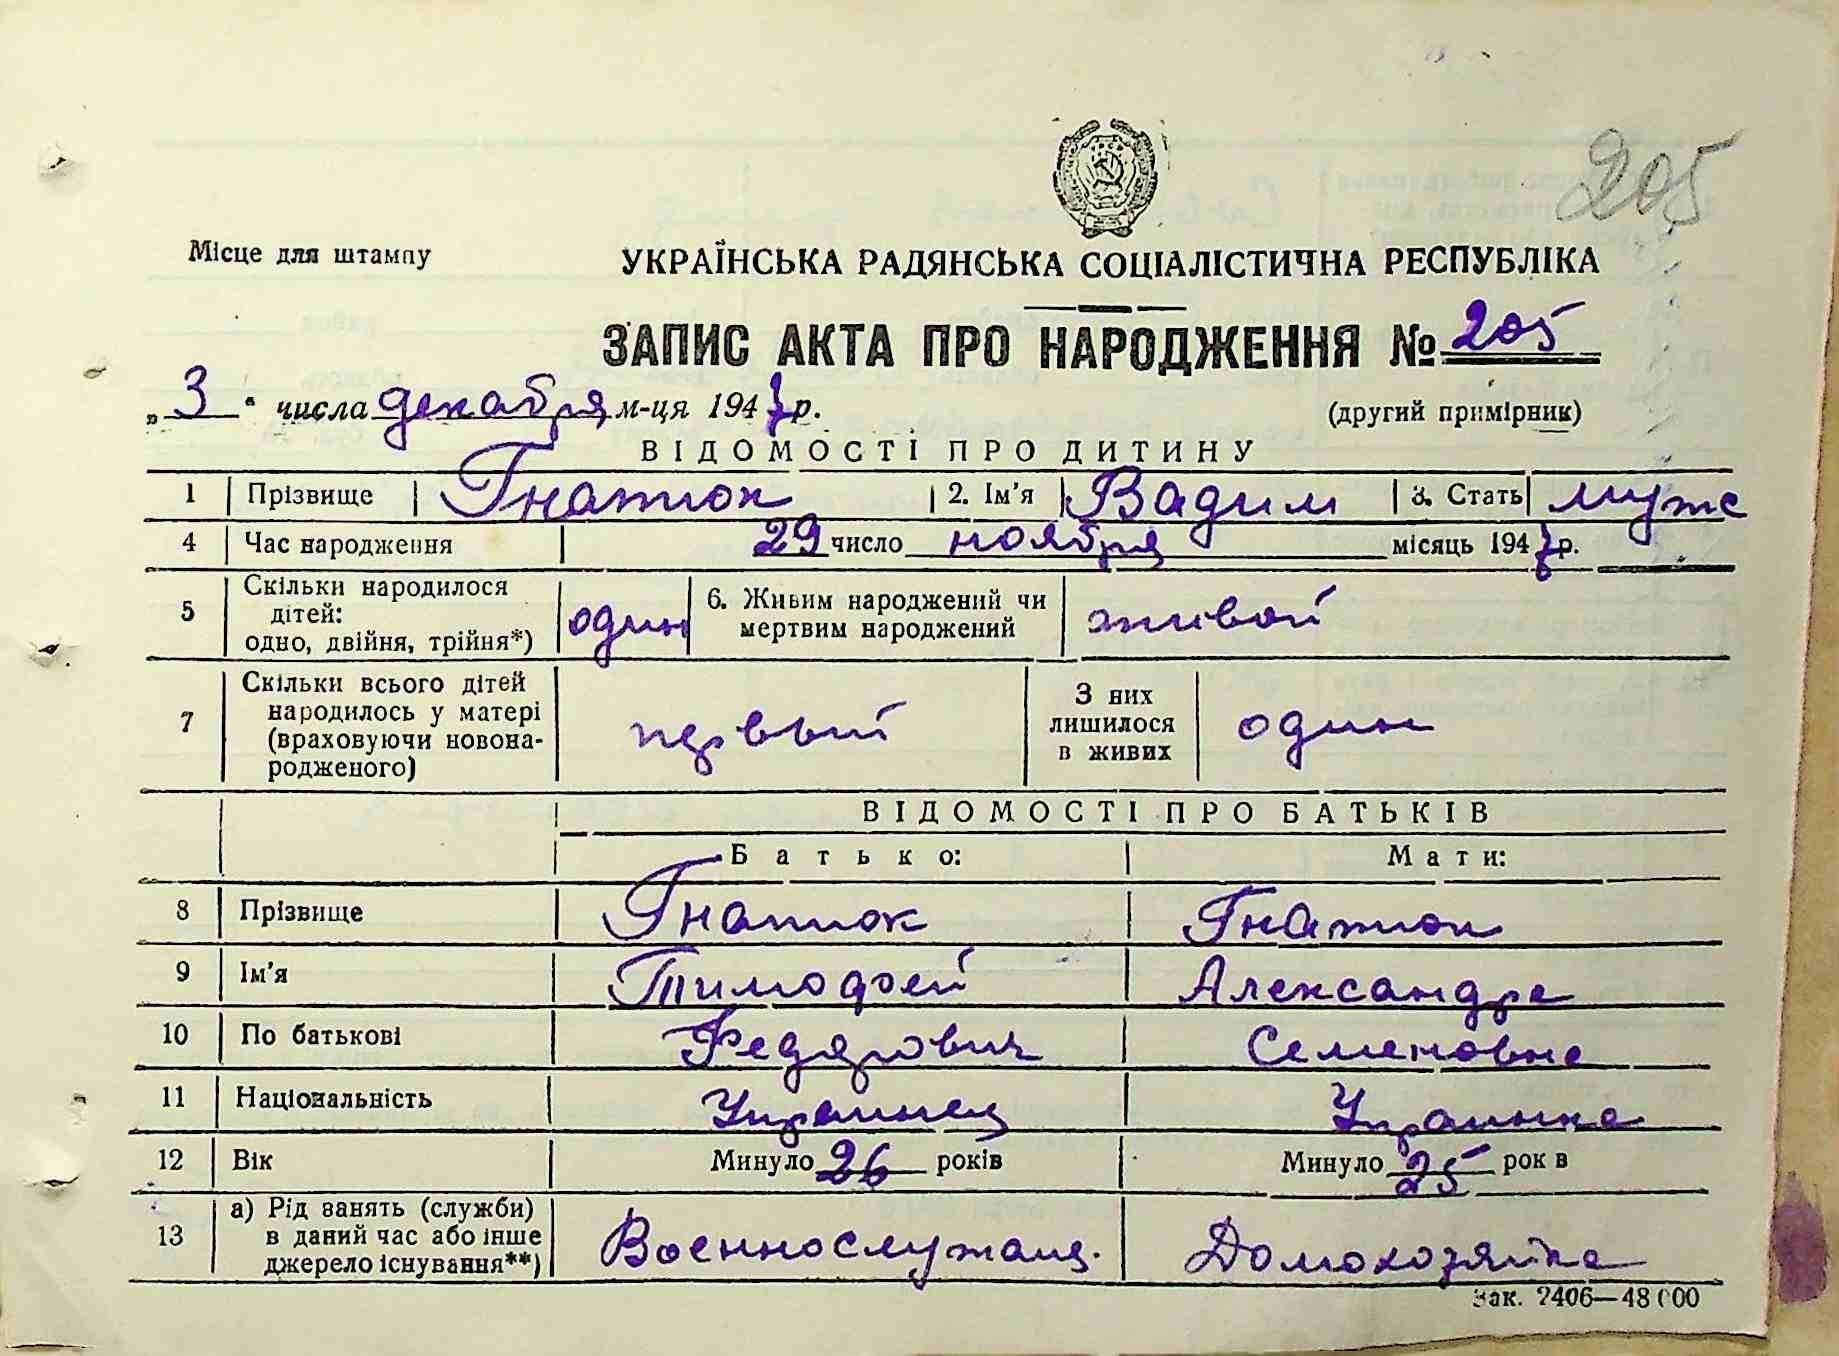 205
Місце для штампу
УКРАЇНСЬКА РАДЯНСЬКА СОЦІАЛІСТИЧНА РЕСПУБЛІКА
ЗАПИС АКТА ПРО НАРОДЖЕННЯ № 205
„ 3 “ числа декабря м-ця 1947 р. (другий примірник)
ВІДОМОСТІ ПРО ДИТИНУ
1 Прізвище Гнатюк 2. Ім'я Вадим 3. Стать мужс
4 Час народження 29 число ноября місяць 1947 р.
5 Скільки народилося дітей: одно, двійня, трійня*) один 6. Живим народжений чи мертвим народжений живой
7 Скільки всього дітей народилось у матері (враховуючи новона-родженого) первый З них лишилося в живих один
ВІДОМОСТІ ПРО БАТЬКІВ
Батько: Мати:
8 Прізвище Гнатюк Гнатюк
9 Ім'я Тимофей Александра
10 По батькові Федярович Семеновна
11 Національність Украинец Украинка
12 Вік Минуло 26 років Минуло 25 рок в
13 а) Рід занять (служби) в даний час або інше джерело існування**) Военнослужащ. Домохозяйка
Зак. 2406—48000